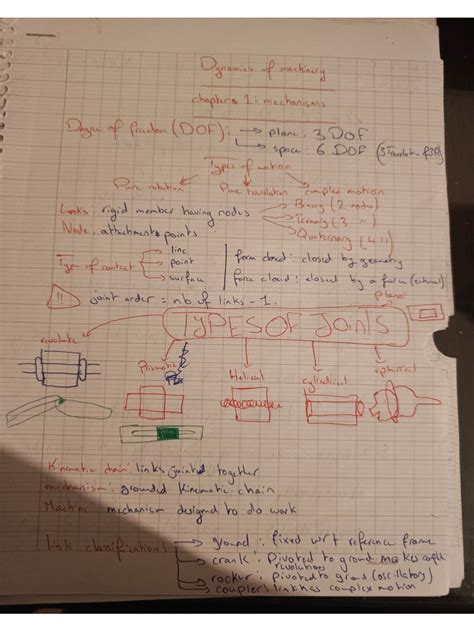 Dynamics of machinery
chapter 1: mechanisms
Degree of freedom (DOF): → plane: 3 DOF
→ space: 6 DOF (3 Translation & 3R)
Types of motion
Pure rotation Pure translation complex motion
Links: rigid member having nodes Binary (2 nodes)
Ternary (3 ")
Node: attachment points Quaternary (4 ")
Type of contact → line
→ point
→ surface
form closed: closed by geometry
force closed: closed by a force (external)
!! joint order = nb of links - 1.
planar
TYPES OF JOINTS
revolute
Prismatic
Helical
cylindrical
spherical
Kinematic chain: links jointed together
mechanism: grounded Kinematic chain
Machine: mechanism designed to do work
link classifications → ground: fixed w/t reference frame
→ crank: Pivoted to ground makes complete
revolutions
→ rocker: pivoted to ground (oscillatory)
→ coupler: link has complex motion